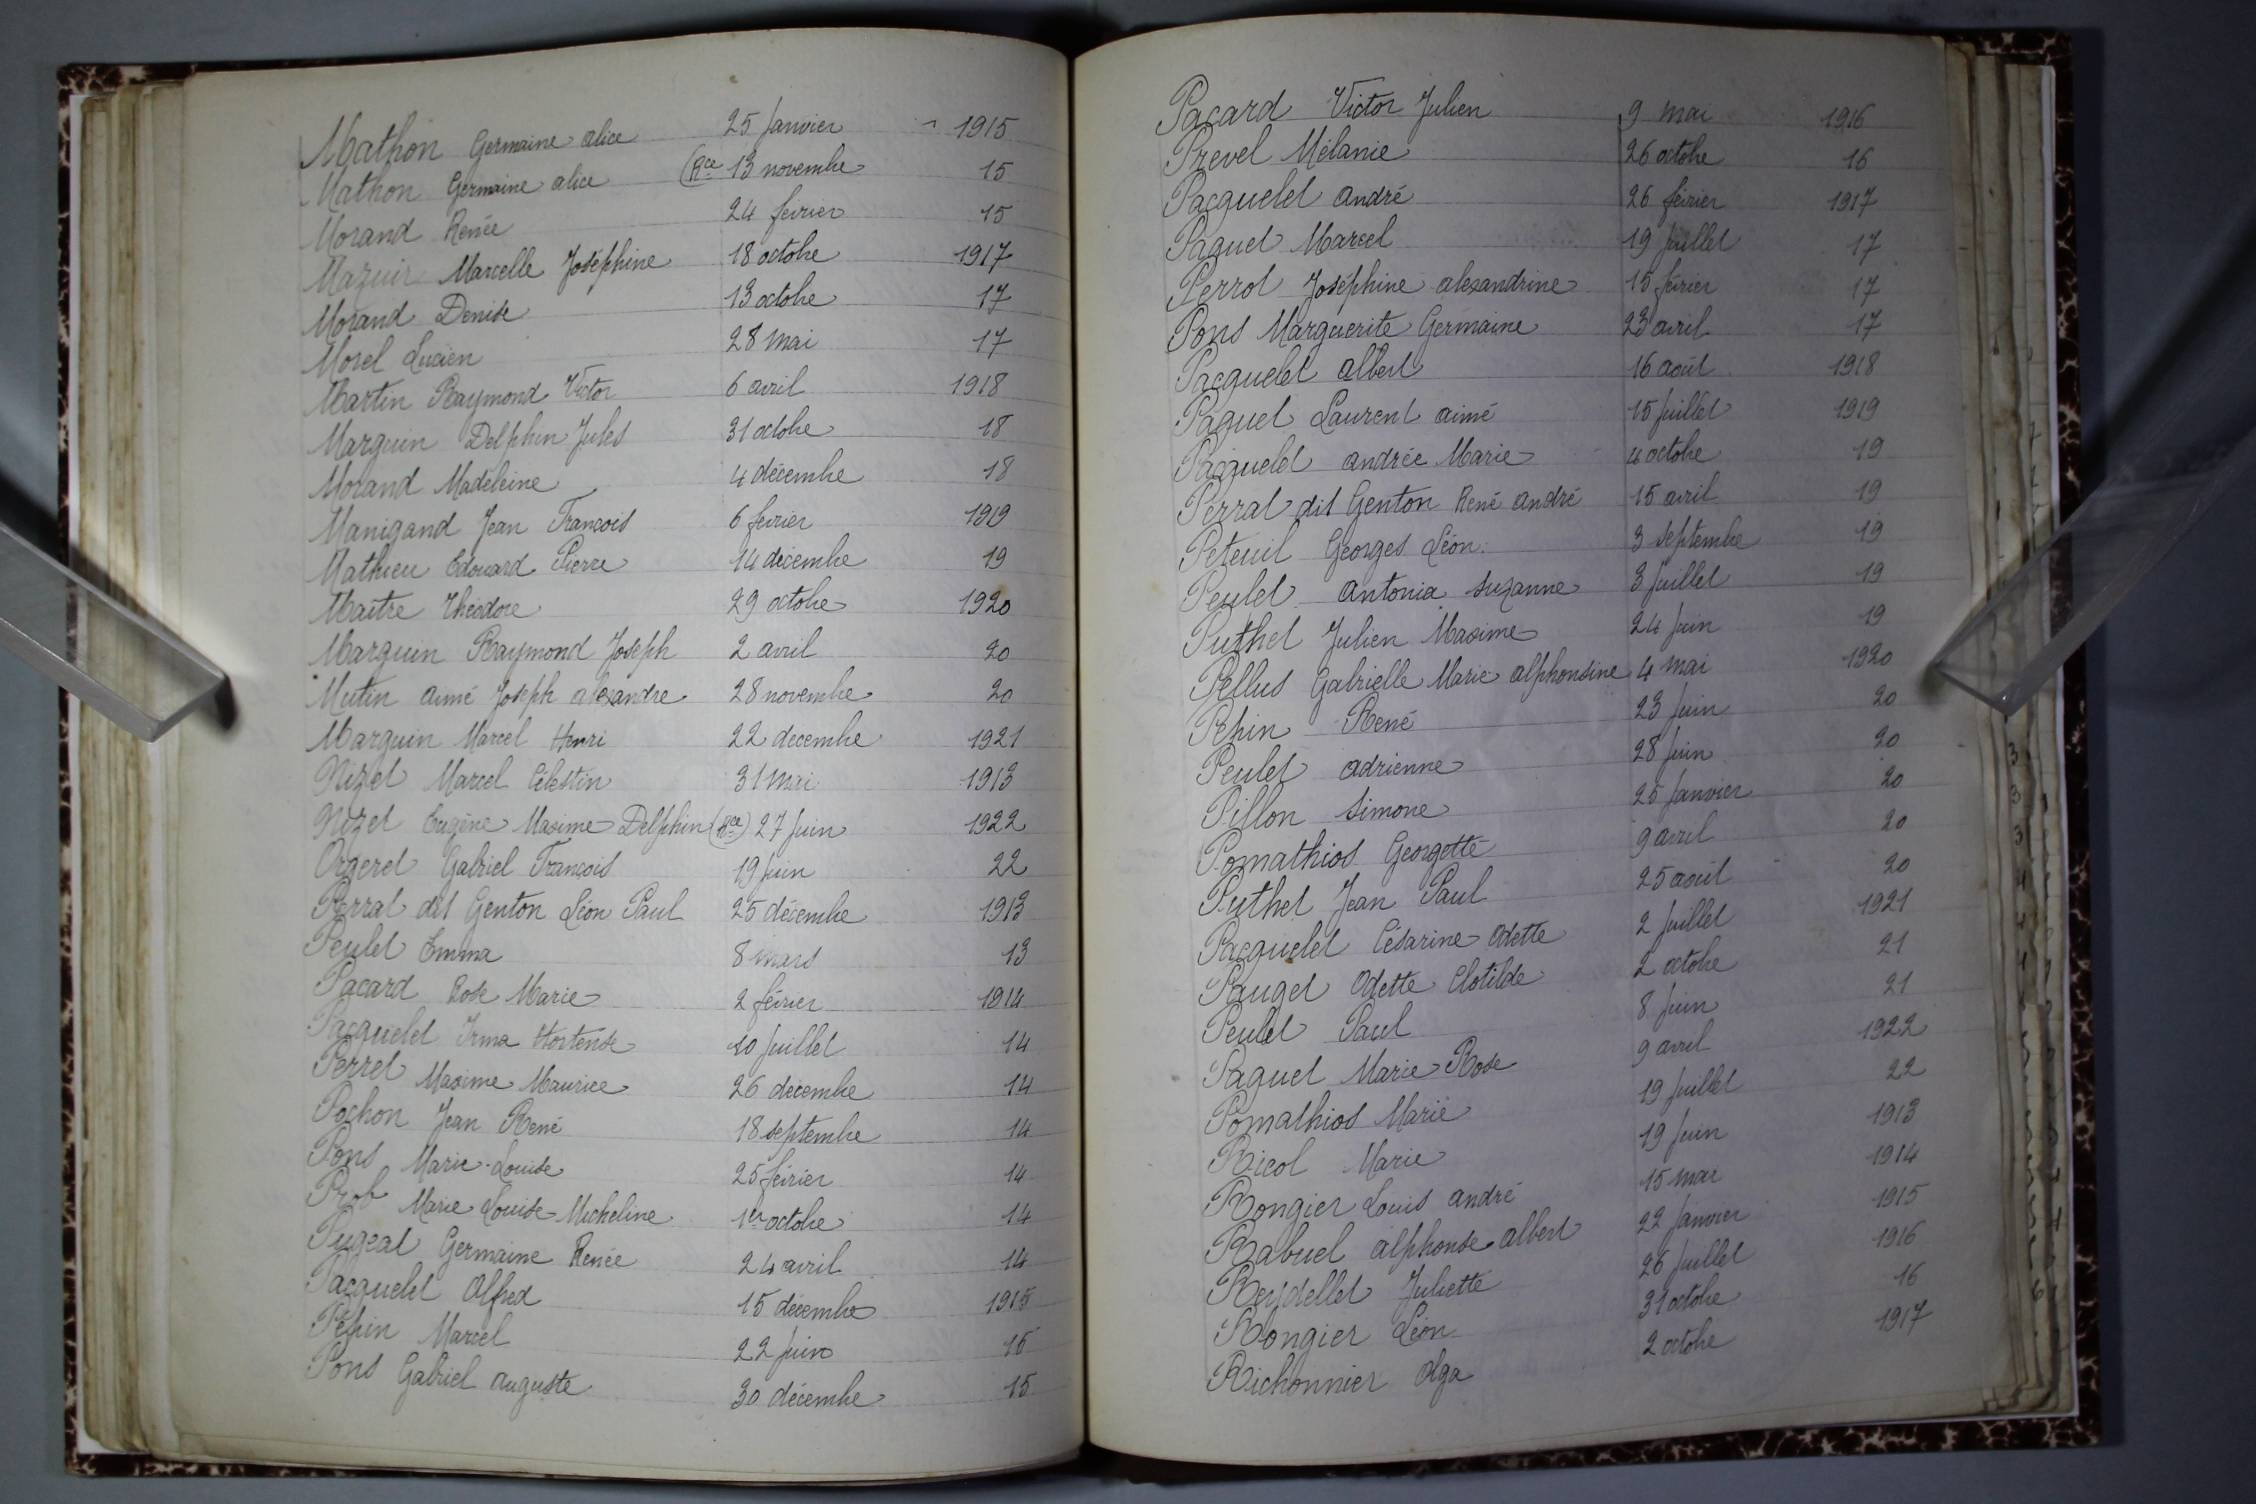 Mathon Germaine alice 25 Janvier 1915
Mathon Germaine alice (Rce 13 novembre 15
Morand Renée 24 février 15
Mazuir Marcelle Joséphine 18 octobre 1917
Morand Denise 13 octobre 17
Morel Lucien 28 Mai 17
Martin Raymond Victor 6 avril 1918
Marguin Delphin Jules 31 octobre 18
Morand Madeleine 4 décembre 18
Manigand Jean François 6 février 1919
Mathieu Edouard Pierre 14 décembre 19
Maître Théodore 29 octobre 1920
Marguin Raymond Joseph 2 avril 20
Mutin aimé Joseph alexandre 28 novembre 20
Marguin Marcel Henri 22 décembre 1921
Nizet Marcel Célestin 31 Mai 1913
Nizet Eugène Maxime Delphin (Rce) 27 Juin 1922
Orgeret Gabriel François 19 Juin 22
Perrat dit Genton Léon Paul 25 décembre 1913
Peulet Emma 8 mars 13
Pacard Rose Marie 2 février 1914
Pacquelet Irma Hortense 10 Juillet 14
Perret Maxime Maurice 26 décembre 14
Pochon Jean René 18 septembre 14
Pons Marie-Louise 25 février 14
Prob Marie Louise Micheline 1er octobre 14
Pugeat Germaine Renée 24 avril 14
Pacquelet Alfred 15 décembre 1915
Pépin Marcel 22 Juin 15
Pons Gabriel auguste 30 décembre 15
Pacard Victor Julien 9 mai 1916
Prevel Mélanie 26 octobre 16
Pacquelet andré 26 février 1917
Paquet Marcel 19 Juillet 17
Perrot Joséphine alexandrine 15 février 17
Pons Marguerite Germaine 23 avril 17
Pacquelet albert 16 août 1918
Paquet Laurent aimé 15 Juillet 1919
Pacquelet andrée Marie 4 octobre 19
Perrat dit Genton René andré 15 avril 19
Peteuil Georges Léon 3 septembre 19
Peulet Antonia suzanne 3 Juillet 19
Puthet Julien Maxime 24 Juin 19
Pellus Gabrielle Marie alphonsine 4 mai 1920
Pépin René 23 Juin 20
Peulet adrienne 28 Juin 20
Pillon simone 25 Janvier 20
Pomathios Georgette 9 avril 20
Puthet Jean Paul 25 août 20
Pacquelet Césarine Odette 2 Juillet 1921
Pauget Odette Clotilde 2 octobre 21
Peulet Paul 8 Juin 21
Paquet Marie-Rose 9 avril 1922
Pomathios Marie 19 Juillet 22
Ricol Marie 19 Juin 1913
Rongier Louis andré 15 mai 1914
Rabuel alphonse albert 22 Janvier 1915
Reydellet Juliette 26 Juillet 1916
Rongier Léon 31 octobre 16
Richonnier Olga 2 octobre 1917